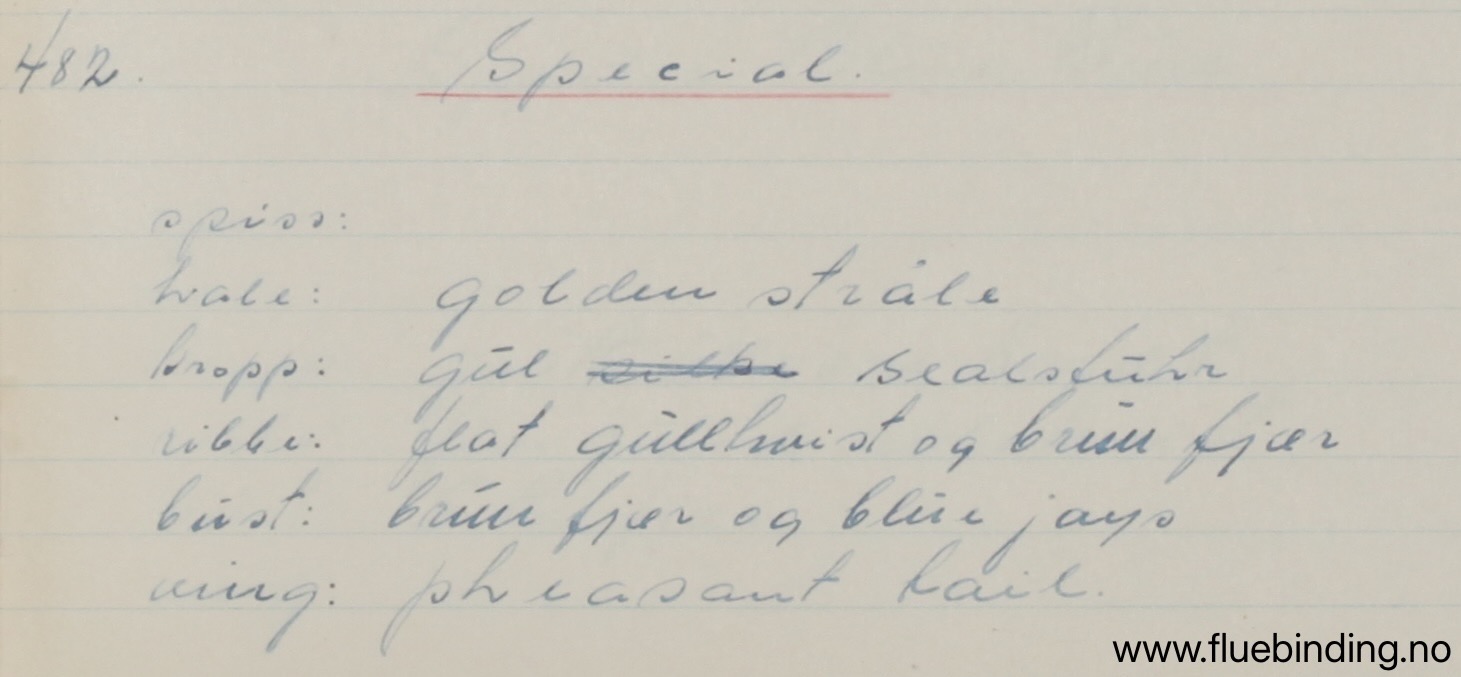 482. Special.
spiss:
hale: golden stråle
kropp: gul silke sealsfuhr
ribbe: flat gulltvist og brun fjær
bust: brun fjær og blue jays
ving: pheasant tail.
www.fluebinding.no